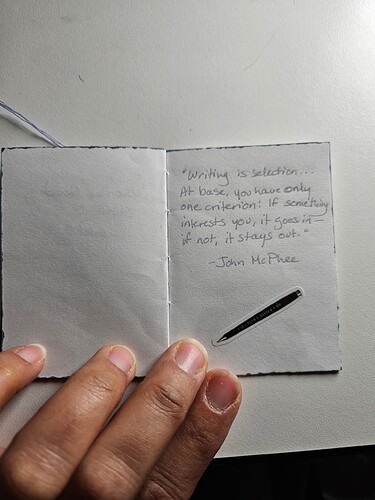 "Writing is selection...
At base, you have only
one criterion: If something
interests you, it goes in—
if not, it stays out."
-John McPhee